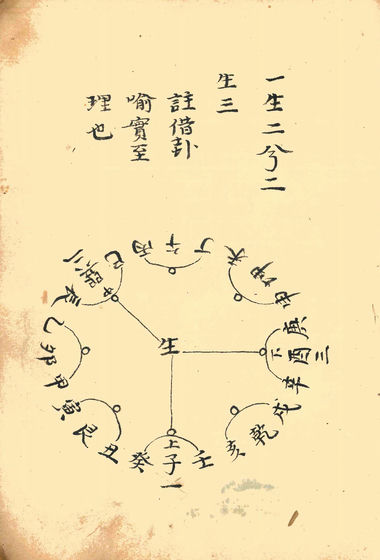 一生二兮二
生三
註借卦
喻實至
理也
丁午丙
未坤申
庚酉辛
下
三
戌乾亥
壬子癸
上
一
丑艮寅
甲卯乙
辰巽巳
中
生